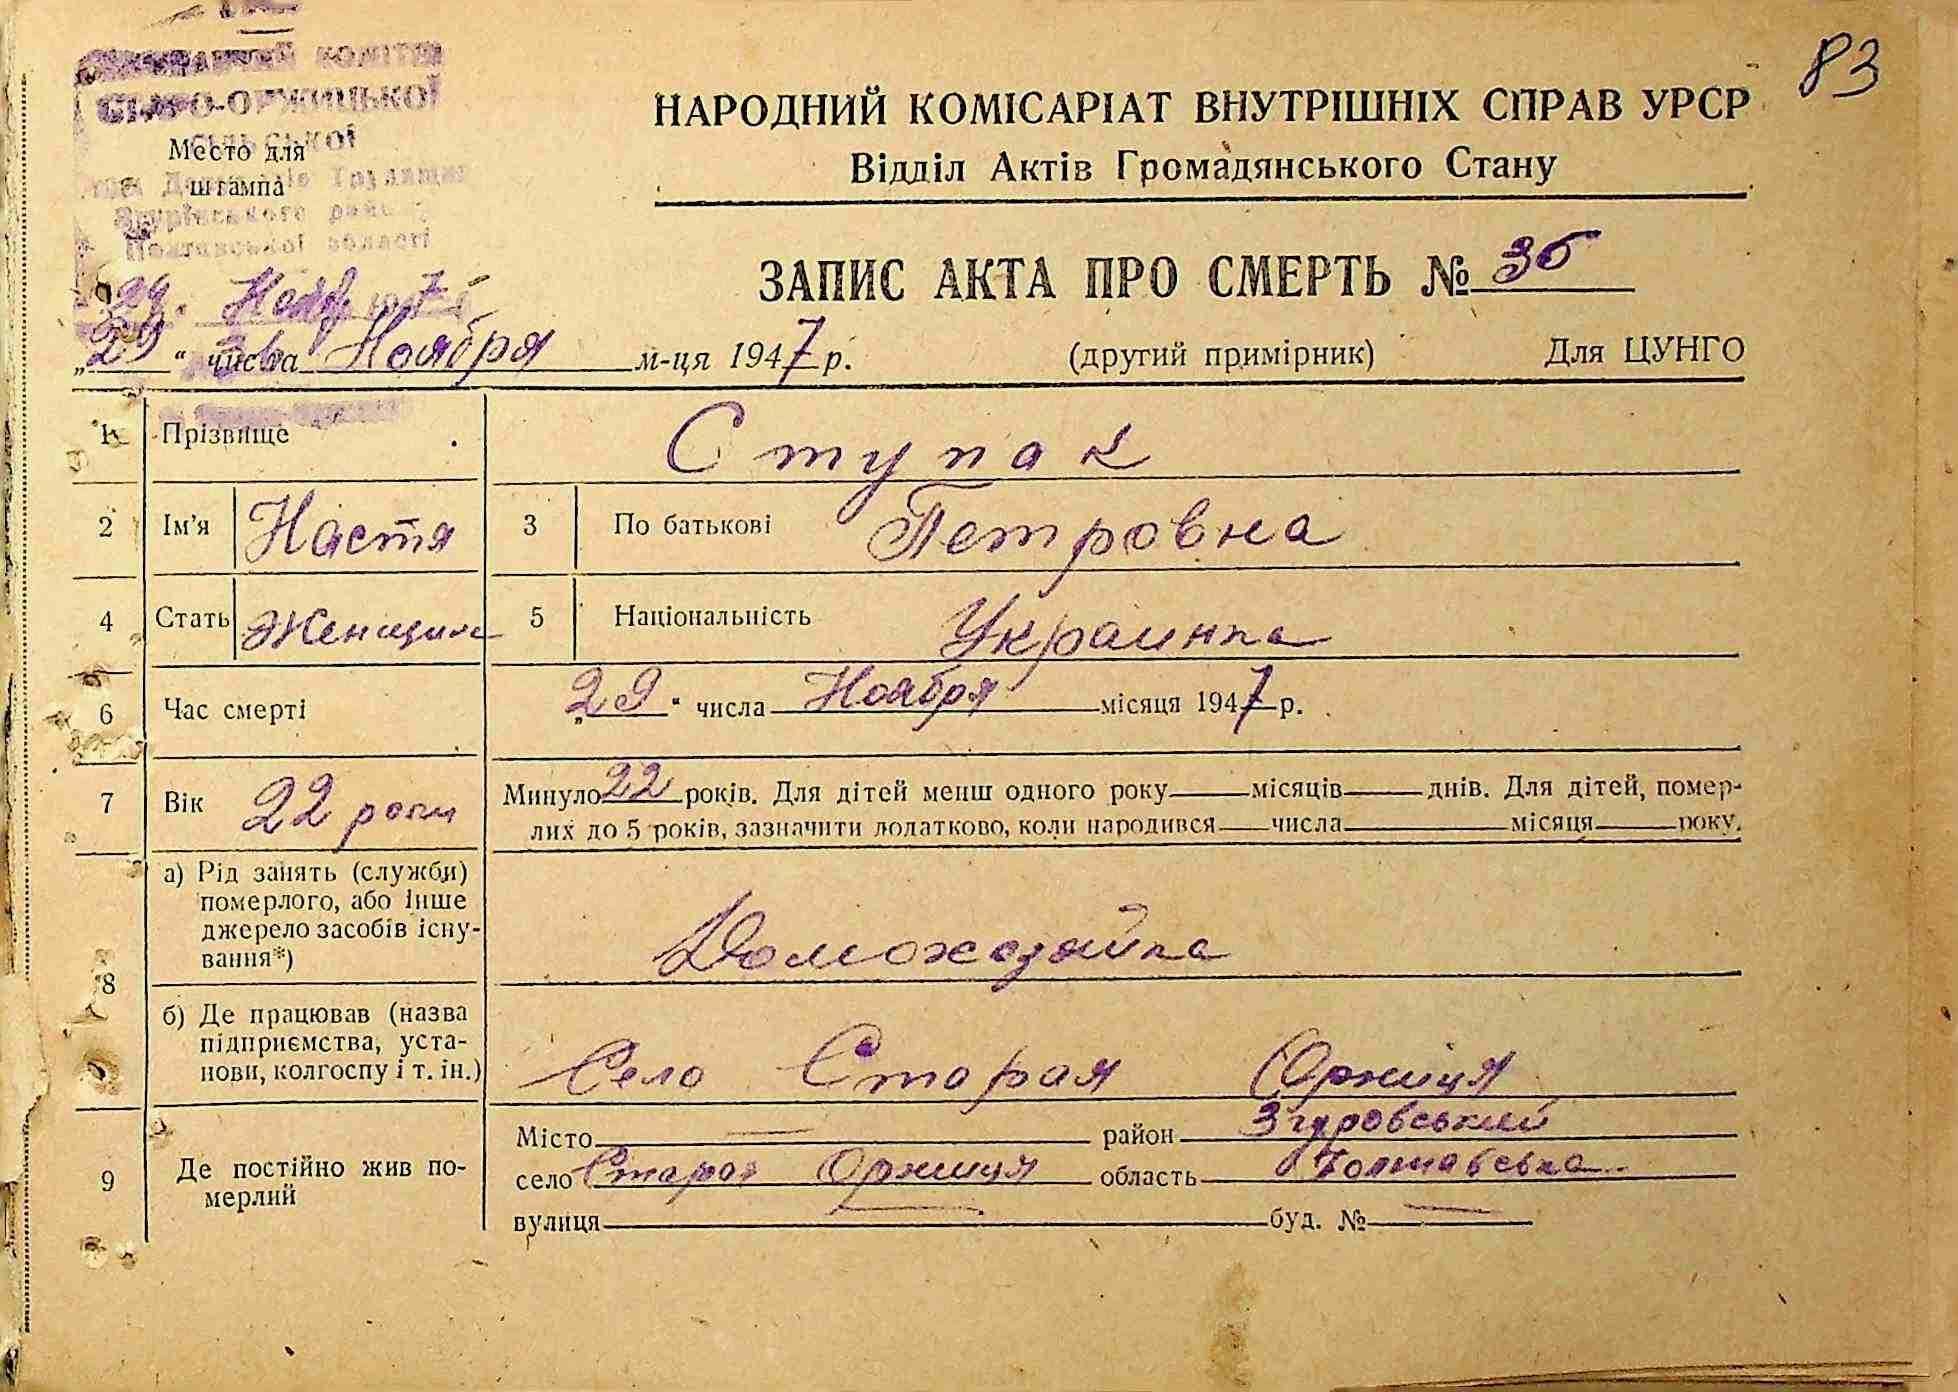 83
КОМІТЕТ
СТАРО-ОРЖИЦЬКОЇ
СІЛЬСЬКОЇ
Место для
штампа
Згурівського району
Полтавської області
29 Нояб 1947
НАРОДНИЙ КОМІСАРІАТ ВНУТРІШНІХ СПРАВ УРСР
Відділ Актів Громадянського Стану
ЗАПИС АКТА ПРО СМЕРТЬ № 36
„29“ числа Ноября м-ця 1947 р. (другий примірник) Для ЦУНГО
1 Прізвище Ступак
2 Ім'я Настя 3 По батькові Петровна
4 Стать Женщина 5 Національність Украинка
6 Час смерті „29“ числа Ноября місяця 1947 р.
7 Вік 22 роки Минуло 22 років. Для дітей менш одного року місяців днів. Для дітей, помер-
лих до 5 років, зазначити додатково, коли народився числа місяця року.
8 а) Рід занять (служби)
померлого, або інше
джерело засобів існу-
вання*)
Домохозяйка
б) Де працював (назва
підприємства, уста-
нови, колгоспу і т. ін.)
Село Старая Оржиця
9 Де постійно жив по-
мерлий
Місто — район Згуровський
село Старая Оржиця область Полтавська
вулиця — буд. № —